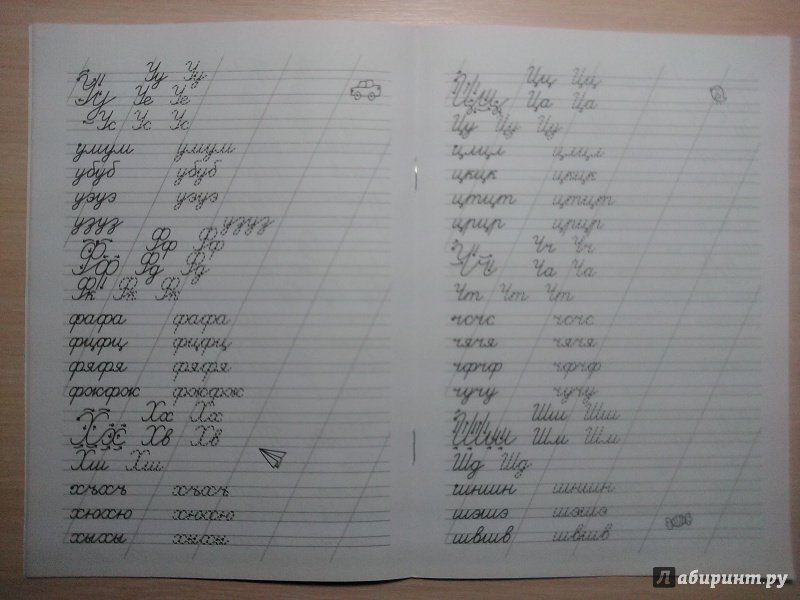 Уу Уу
Уу Уе Уе
Ус Ус Ус
умум умум
убуб убуб
уэуэ уэуэ
узуз узуз
Фф Фф
Фф Фд Фд
Фк Фк Фк
фафа фафа
фцфц фцфц
фяфя фяфя
фжфж фжфж
Хх Хх
Хх Хв Хв
Хш Хш
хъхъ хъхъ
хюхю хюхю
хыхы хыхы
Цц Цц
Цц Ца Ца
Цу Цу Цу
цлцл цлцл
цкцк цкцк
цтцт цтцт
црцр црцр
Чч Чч
Чч Ча Ча
Чт Чт Чт
чсчс чсчс
чячя чячя
чфчф чфчф
чучу чучу
Шш Шш
Шш Шм Шм
Шд Шд
шншн шншн
шэшэ шэшэ
швшв швшв
Лабиринт.ру